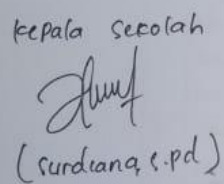 kepala sekolah
(surdiana, s.pd)